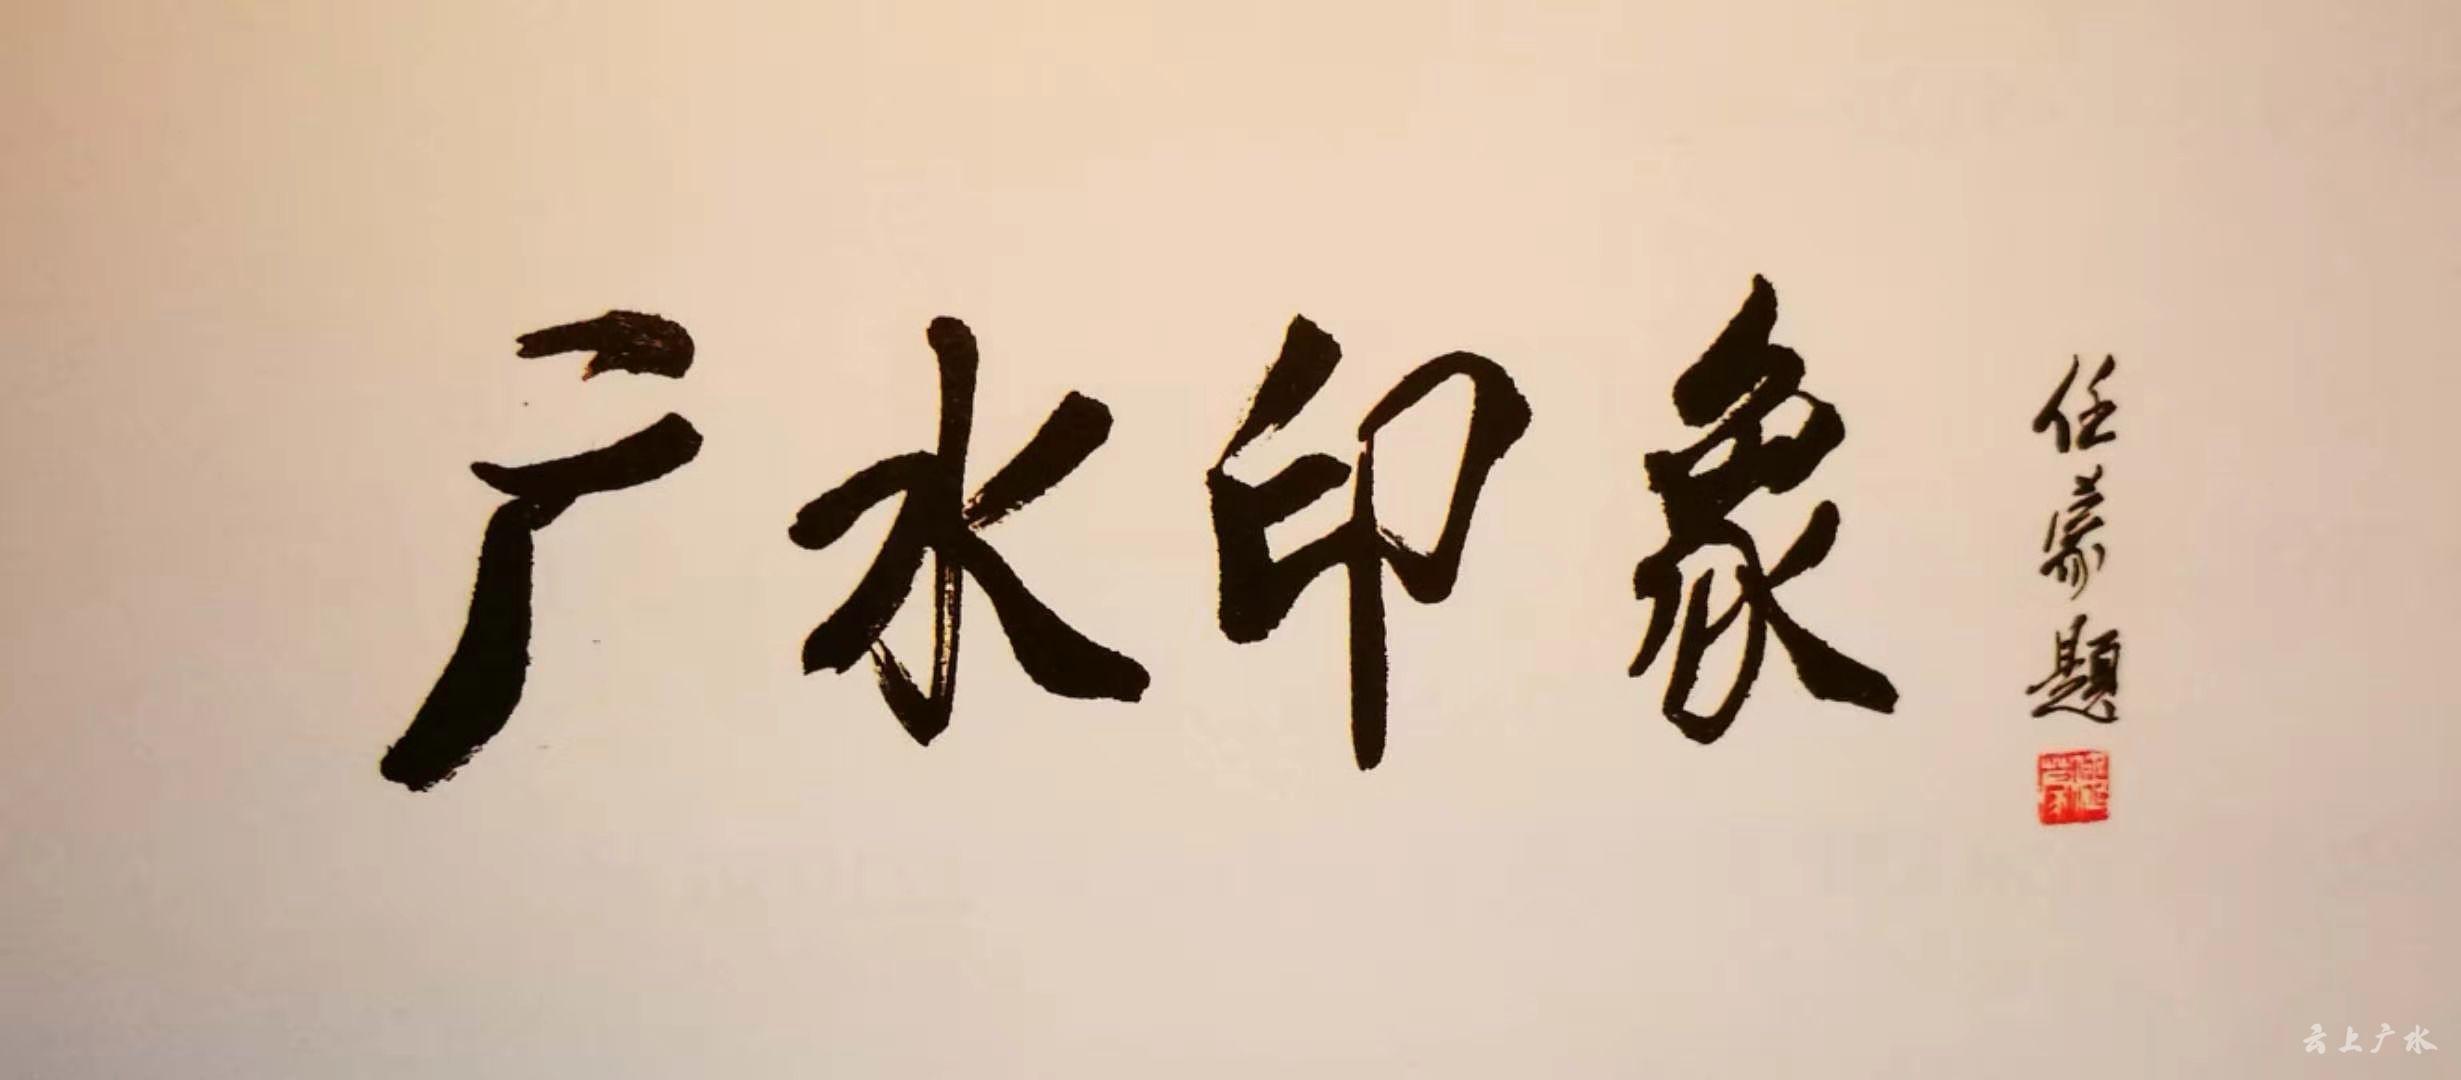 广水印象
任蒙题
云上广水